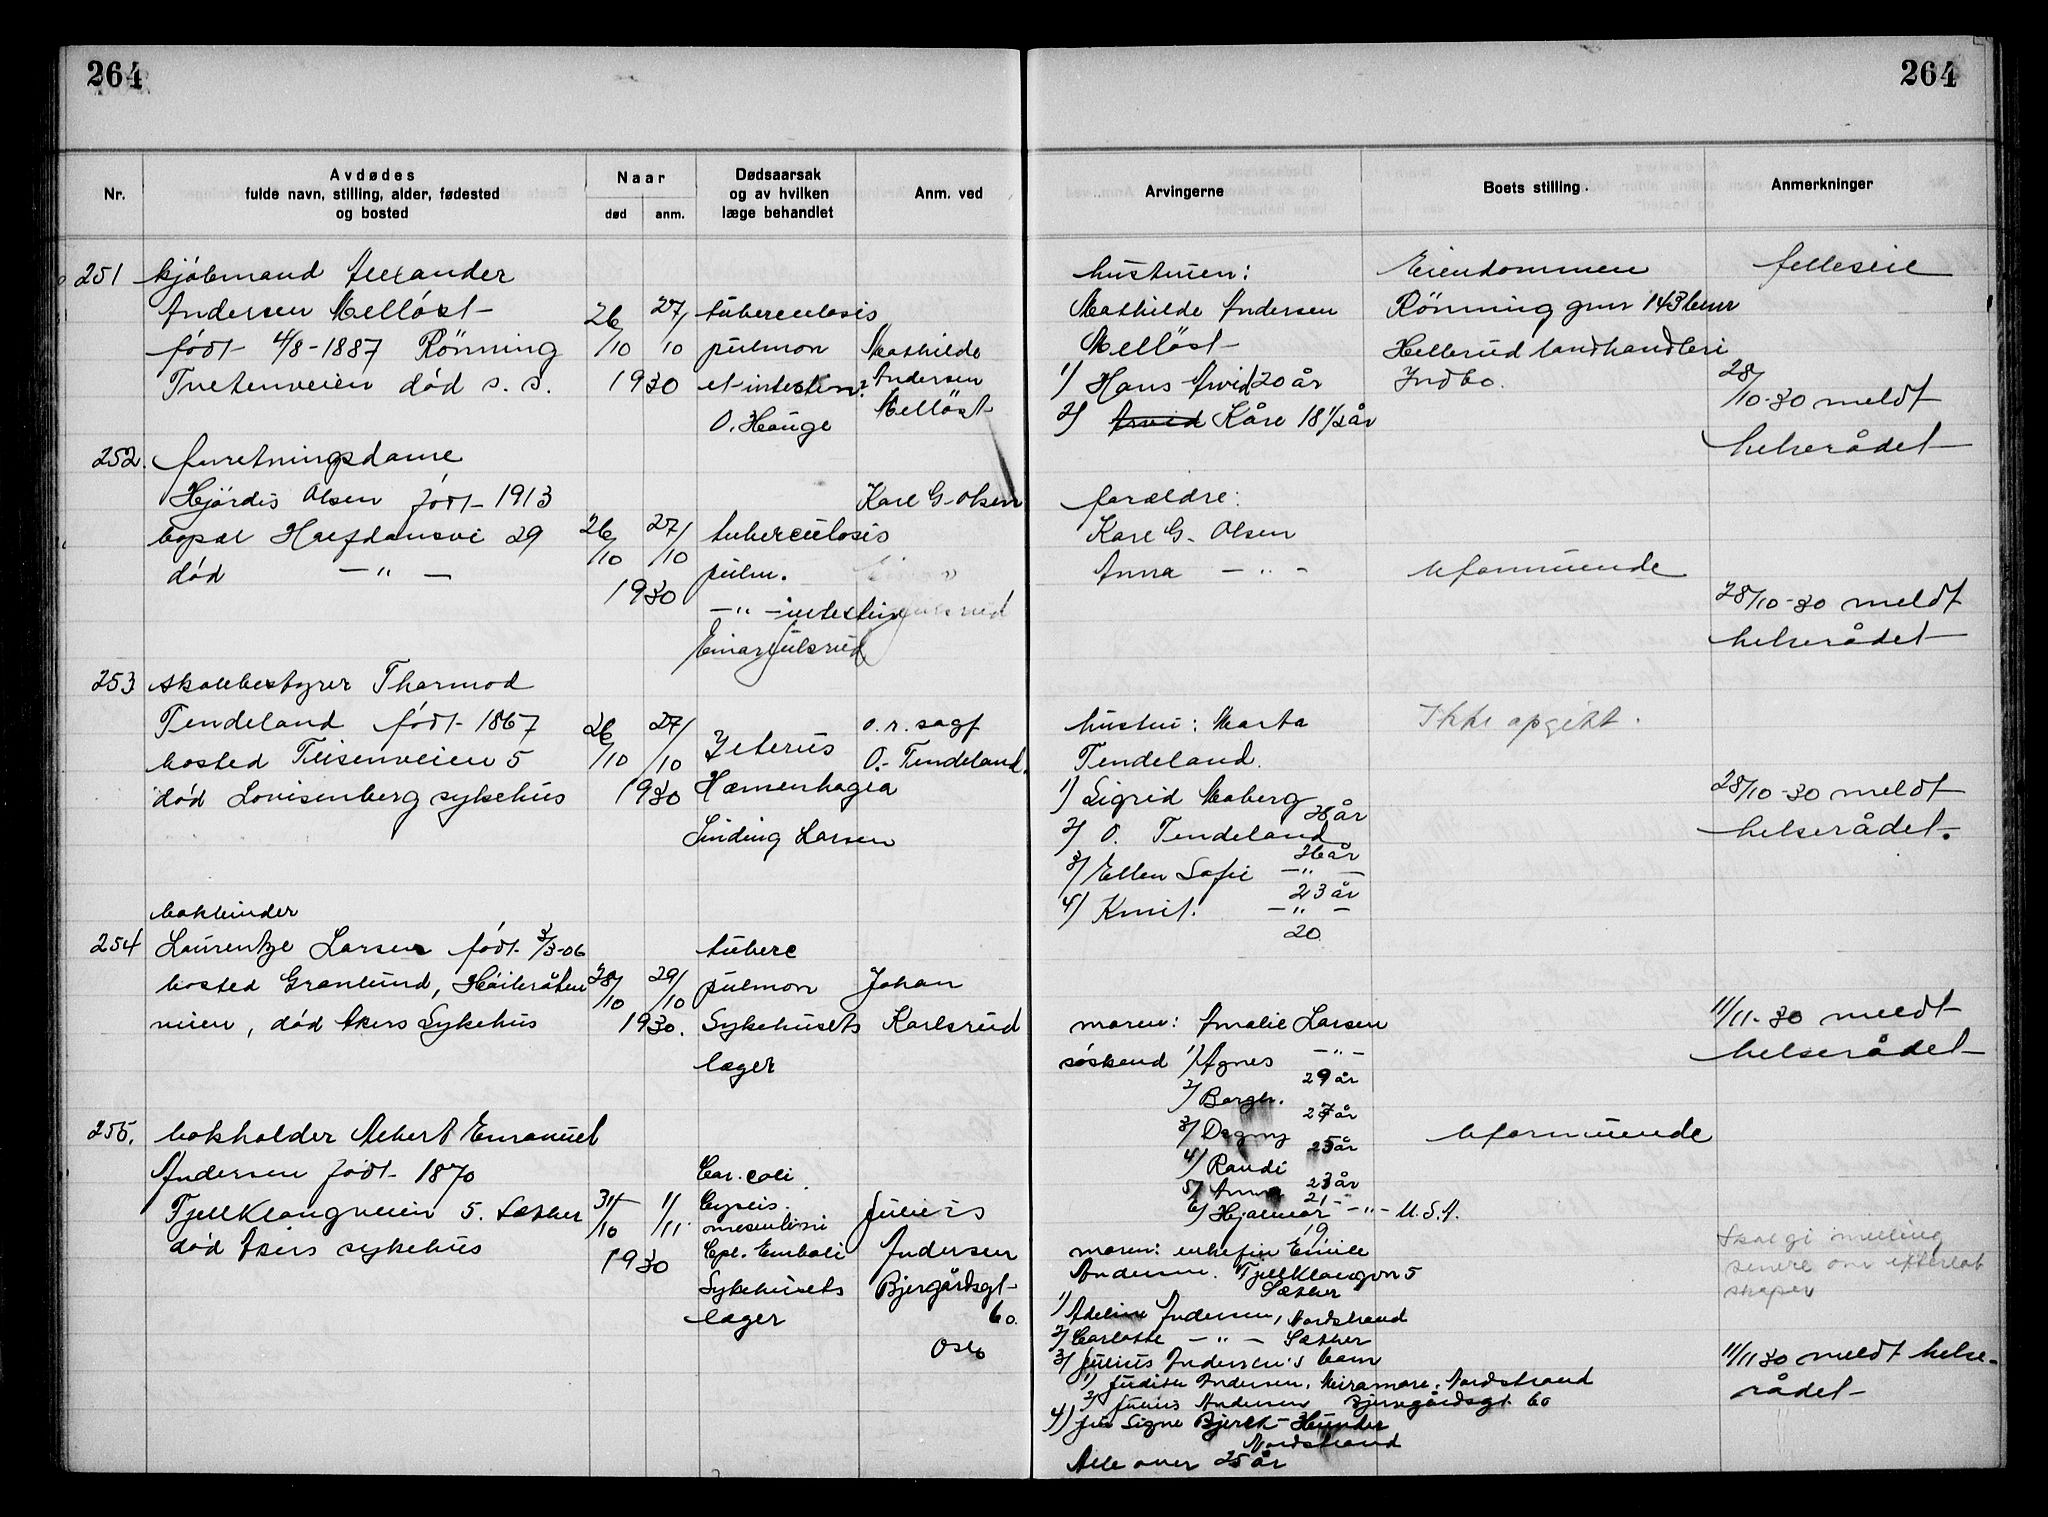 264
264
Nr.
Avdødes
fulde navn, stilling, alder, fødested
og bosted
Naar
død
anm.
Dødsaarsak
og av hvilken
læge behandlet
Anm. ved
Arvingerne
Boets stilling.
Anmerkninger
251
kjöbmand Alexander
Andersen Melløst
født 4/8-1887 Rönning
Tvetenveien død s. s.
26/10
27/10
1930
tuberculosis
pulmon
et intestin
O. Hauge
Mathilde
Andersen
Melløst
hustruen:
Mathilde Andersen
Melløst
1) Hans Arvid 20 år
2) Arvid Kåre 18 1/2 år
Eiendommen
Rönning gnr 143 bnr
Hellerud landhandleri
Indbo.
felleseie
28/10-30 meldt
helserådet
252.
forretningsdame
Hjördis Olsen født 1913
bopæl Halfdansvei 29
død — " —
26/10
27/10
1930
tuberculosis
pulm.
— " — intestin
Einar Julsrud
Karl G. Olsen
forældre:
Karl G. Olsen
Anna — " —
Uformuende
28/10-30 meldt
helserådet
253
skolebestyrer Thormod
Tendeland født 1867
bosted Teisenveien 5
død Lovisenberg sykehus
26/10
27/10
1930
Icterus
Hæmorrhagia
Sinding Larsen
o.r. sagf
O. Tendeland.
hustru: Marta
Tendeland.
1) Sigrid Moberg
28 år
2) O. Tendeland
26 år
3) Ellen Sofie — " —
23 år
4) Knut. — " —
20
Ikke opgitt.
28/10-30 meldt
helserådet.
bokbinder
254
Laurentze Larsen født 3/3-06
bosted Granlund, Höibråten
veien, död Akers Sykehus
28/10
29/10
1930.
tuberc
pulmon
Sykehusets
læger
Johan
Karlsrud
moren: Amalie Larsen
söskend 1) Agnes — " —
29 år
2) Borgh.
27 år
3) Dagny
25 år
4) Randi
23 år
5) Anna
21 "
6) Hjalmar — " — U.S.A.
19
11/11-30 meldt
helserådet
255.
bokholder Albert Emanuel
Andersen født 1870
Fjellklangveien 5. Sæther
død Akers sykehus
31/10
1/11
1930
Car. coli
mesenterii
Cpl. Emboli
Sykehusets
læger
Julius
Andersen
Bjergårdsgt
60.
Oslo
Uformuende
moren: enkefru Emilie
Andersen. Fjellklangvn 5
Sæther
1) Adeline Andersen, Nordstrand
2) Carlotte — " — Sæther
3) Julius Andersen's barn
1) Judith Andersen, Miramare, Nordstrand
2) Julius Andersen Bjerregårdsgt. 60
4) fru Signe Bjerck-Hunder
Nordstrand
Alle over 25 år
Skal gi melling
senere om efterlat
skaper
11/11 30 meldt helse-
rådet